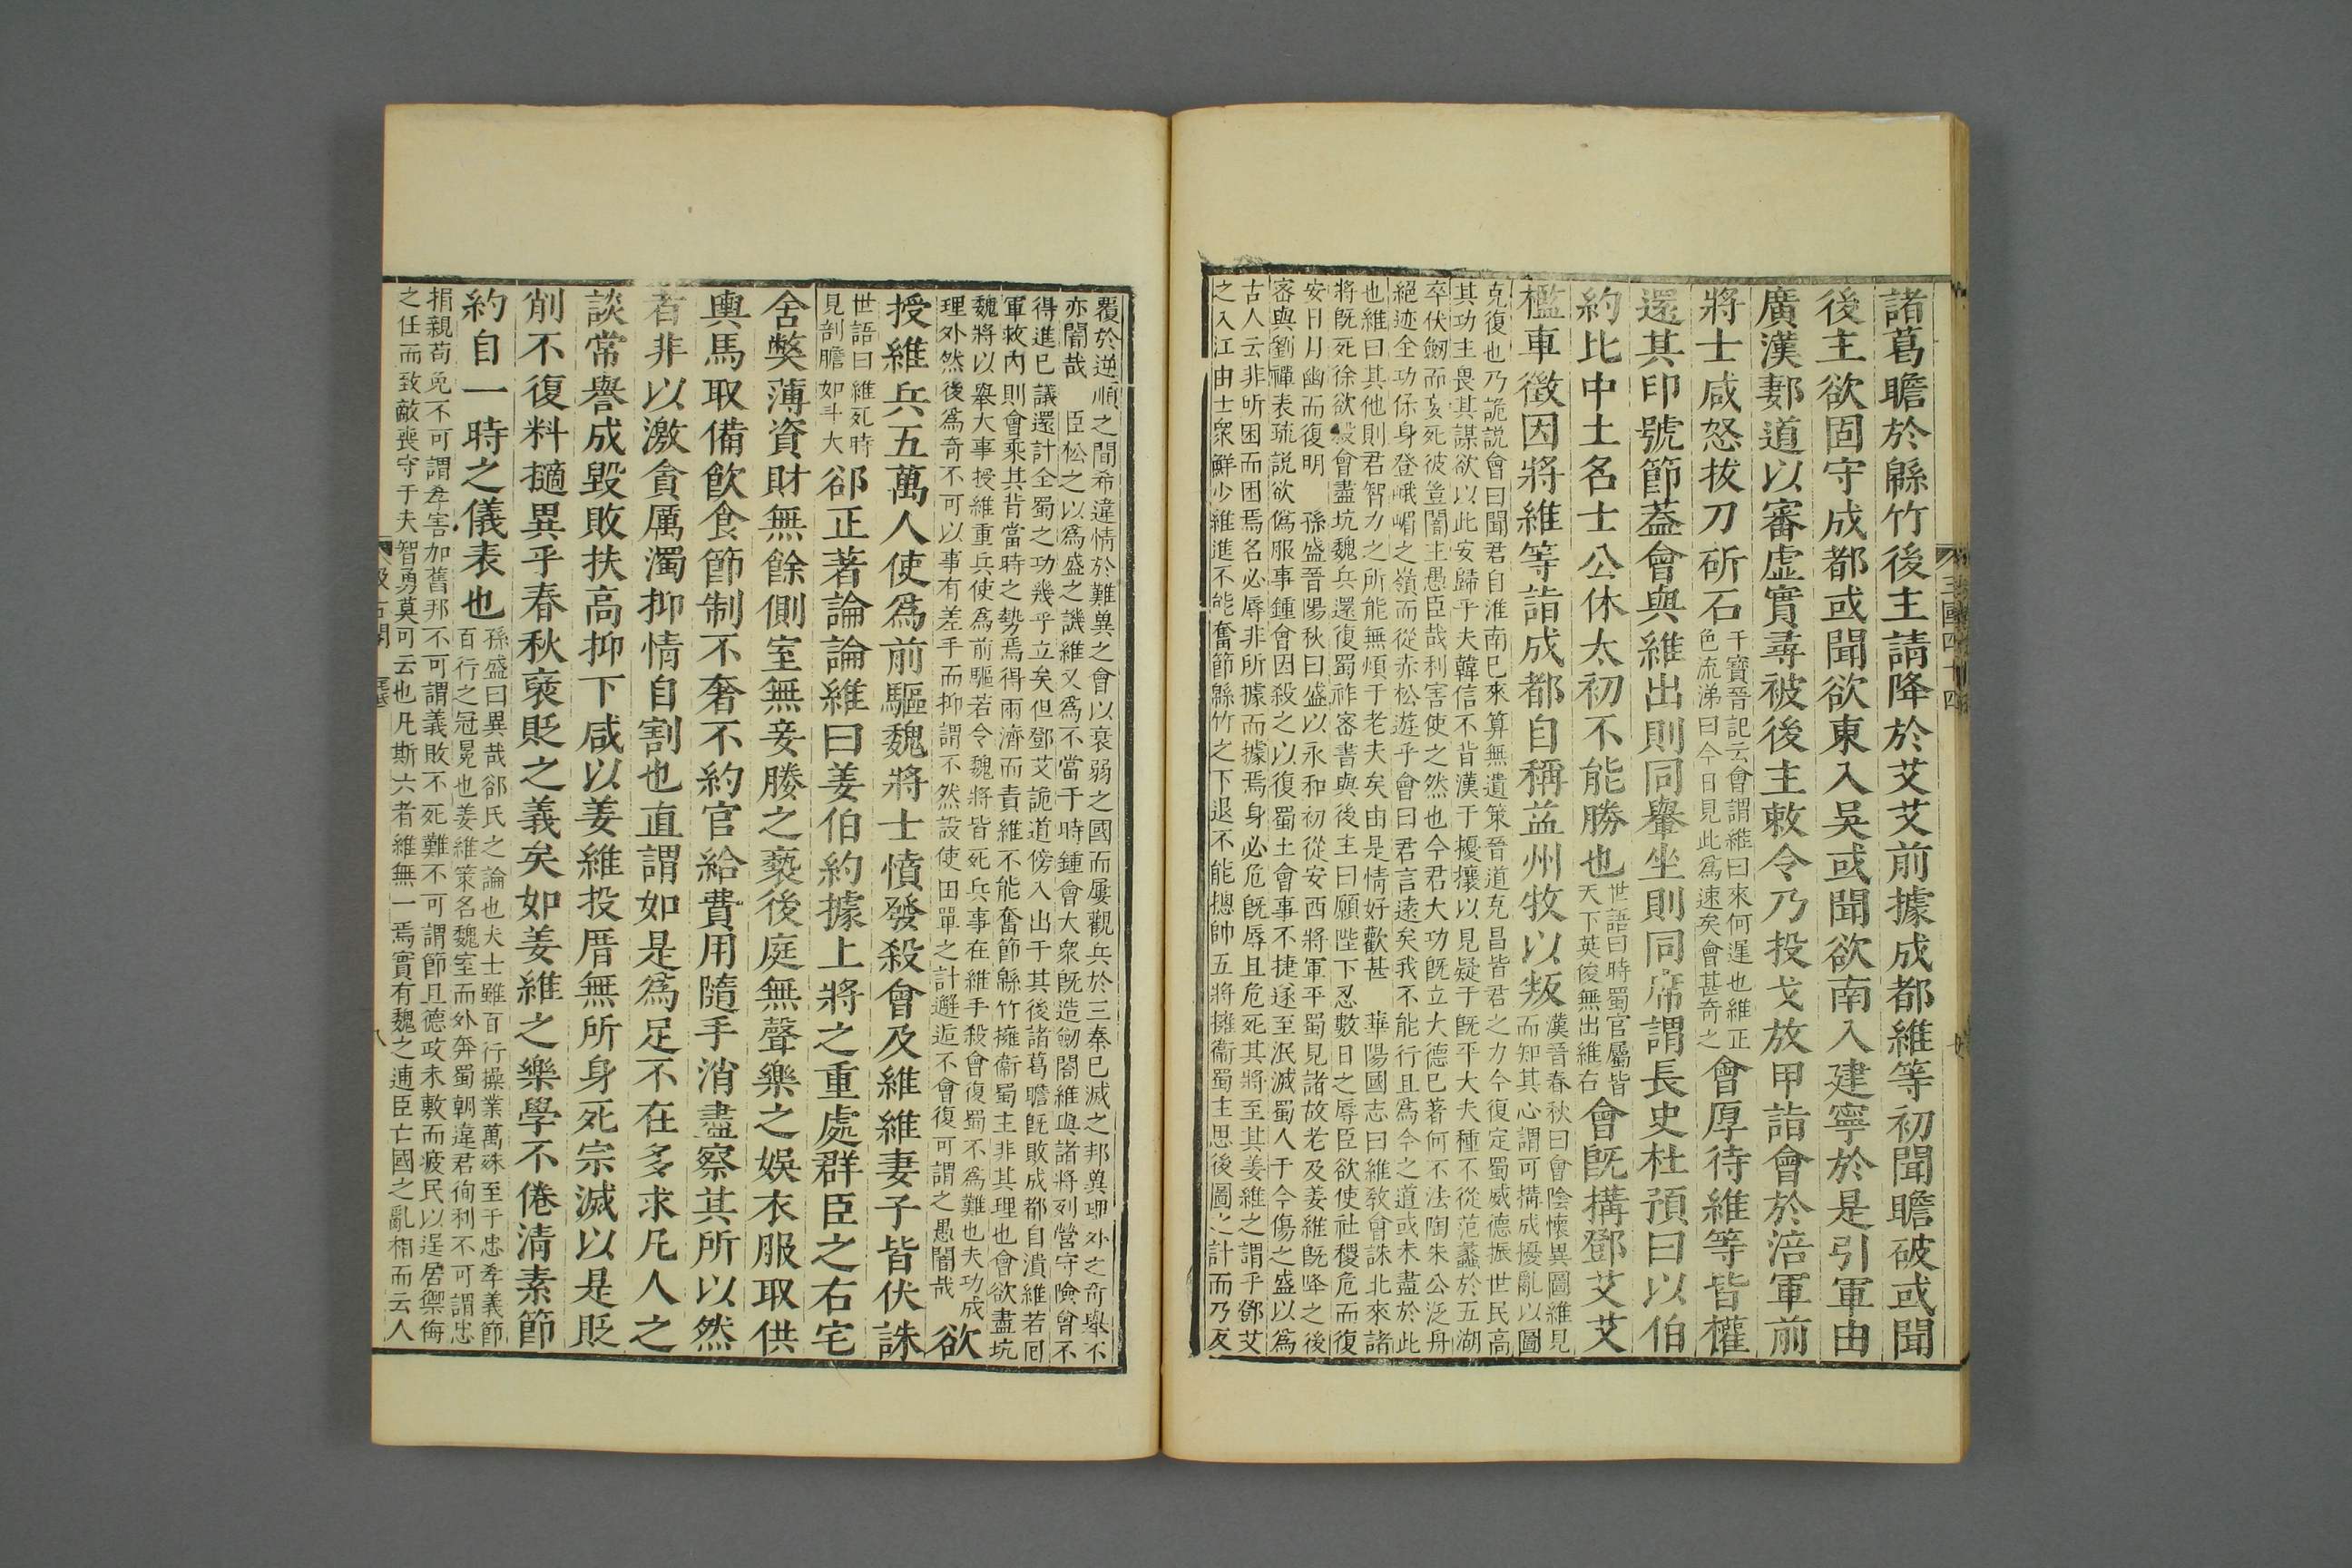 諸葛瞻於緜竹後主請降於艾艾前據成都維等初聞瞻破或聞
後主欲固守成都或聞欲東入吳或聞欲南入建寧於是引軍由
廣漢郪道以審虛實尋被後主敕令乃投戈放甲詣會於涪軍前
將士咸怒拔刀斫石
干寶晉記云會謂維曰來何遲也維正
色流涕曰今日見此爲速矣會甚奇之
會厚待維等皆權
還其印號節蓋會與維出則同轝坐則同席謂長史杜預曰以伯
約比中土名士公休太初不能勝也
世語曰時蜀官屬皆
天下英俊無出維右
會旣構鄧艾艾
檻車徵因將維等詣成都自稱益州牧以叛
漢晉春秋曰會陰懷異圖維見
而知其心謂可構成擾亂以圖
克復也乃詭説會曰聞君自淮南已來算無遺策晉道克昌皆君之力今復定蜀威德振世民高
其功主畏其謀欲以此安歸乎夫韓信不背漢于擾攘以見疑于旣平大夫種不從范蠡於五湖
卒伏劒而妄死彼豈闇主愚臣哉利害使之然也今君大功旣立大德已著何不法陶朱公泛舟
絕迹全功保身登峨嵋之嶺而從赤松遊乎會曰君言遠矣我不能行且爲今之道或未盡於此
也維曰其他則君智力之所能無煩于老夫矣由是情好歡甚　華陽國志曰維敎會誅北來諸
將旣死徐欲殺會盡坑魏兵還復蜀祚宻書與後主曰願陛下忍數日之辱臣欲使社稷危而復
安日月幽而復明　孫盛晉陽秋曰盛以永和初從安西將軍平蜀見諸故老及姜維旣降之後
宻與劉禪表疏説欲僞服事鍾會因殺之以復蜀土會事不捷遂至泯滅蜀人于今傷之盛以爲
古人云非所困而困焉名必辱非所據而據焉身必危旣辱且危死其將至其姜維之謂乎鄧艾
之入江由士衆鮮少維進不能奮節緜竹之下退不能摠帥五將擁衞蜀主思後圖之計而乃反
三國四十四
覆於逆順之間希違情於難兾之會以衰弱之國而屢觀兵於三秦已滅之邦兾理外之奇舉不
亦闇哉　臣松之以爲盛之譏維又爲不當于時鍾會大衆旣造劒閣維與諸將列營守險會不
得進已議還計全蜀之功幾乎立矣但鄧艾詭道傍入出于其後諸葛瞻旣敗成都自潰維若囘
軍救内則會乘其背當時之勢焉得兩濟而責維不能奮節緜竹擁衞蜀主非其理也會欲盡坑
魏將以舉大事授維重兵使爲前驅若令魏將皆死兵事在維手殺會復蜀不爲難也夫功成
理外然後爲奇不可以事有差手而抑謂不然設使田單之計邂逅不會復可謂之愚闇哉
欲
授維兵五萬人使爲前驅魏將士憤發殺會及維維妻子皆伏誅
世語曰維死時
見剖膽如斗大
郤正著論論維曰姜伯約據上將之重處群臣之右宅
舍弊薄資財無餘側室無妾媵之褻後庭無聲樂之娛衣服取供
輿馬取備飮食節制不奢不約官給費用隨手消盡察其所以然
者非以激貪厲濁抑情自割也直謂如是爲足不在多求凡人之
談常譽成毀敗扶高抑下咸以姜維投厝無所身死宗滅以是貶
削不復料擿異乎春秋襃貶之義矣如姜維之樂學不倦淸素節
約自一時之儀表也
孫盛曰異哉郤氏之論也夫士雖百行操業萬殊至于忠孝義節
百行之冠冕也姜維策名魏室而外奔蜀朝違君徇利不可謂忠
捐親苟免不可謂孝害加舊邦不可謂義敗不死難不可謂節且德政未敷而疲民以逞居禦侮
之任而致敵喪守于夫智勇莫可云也凡斯六者維無一焉實有魏之逋臣亡國之亂相而云人
汲古閣
八